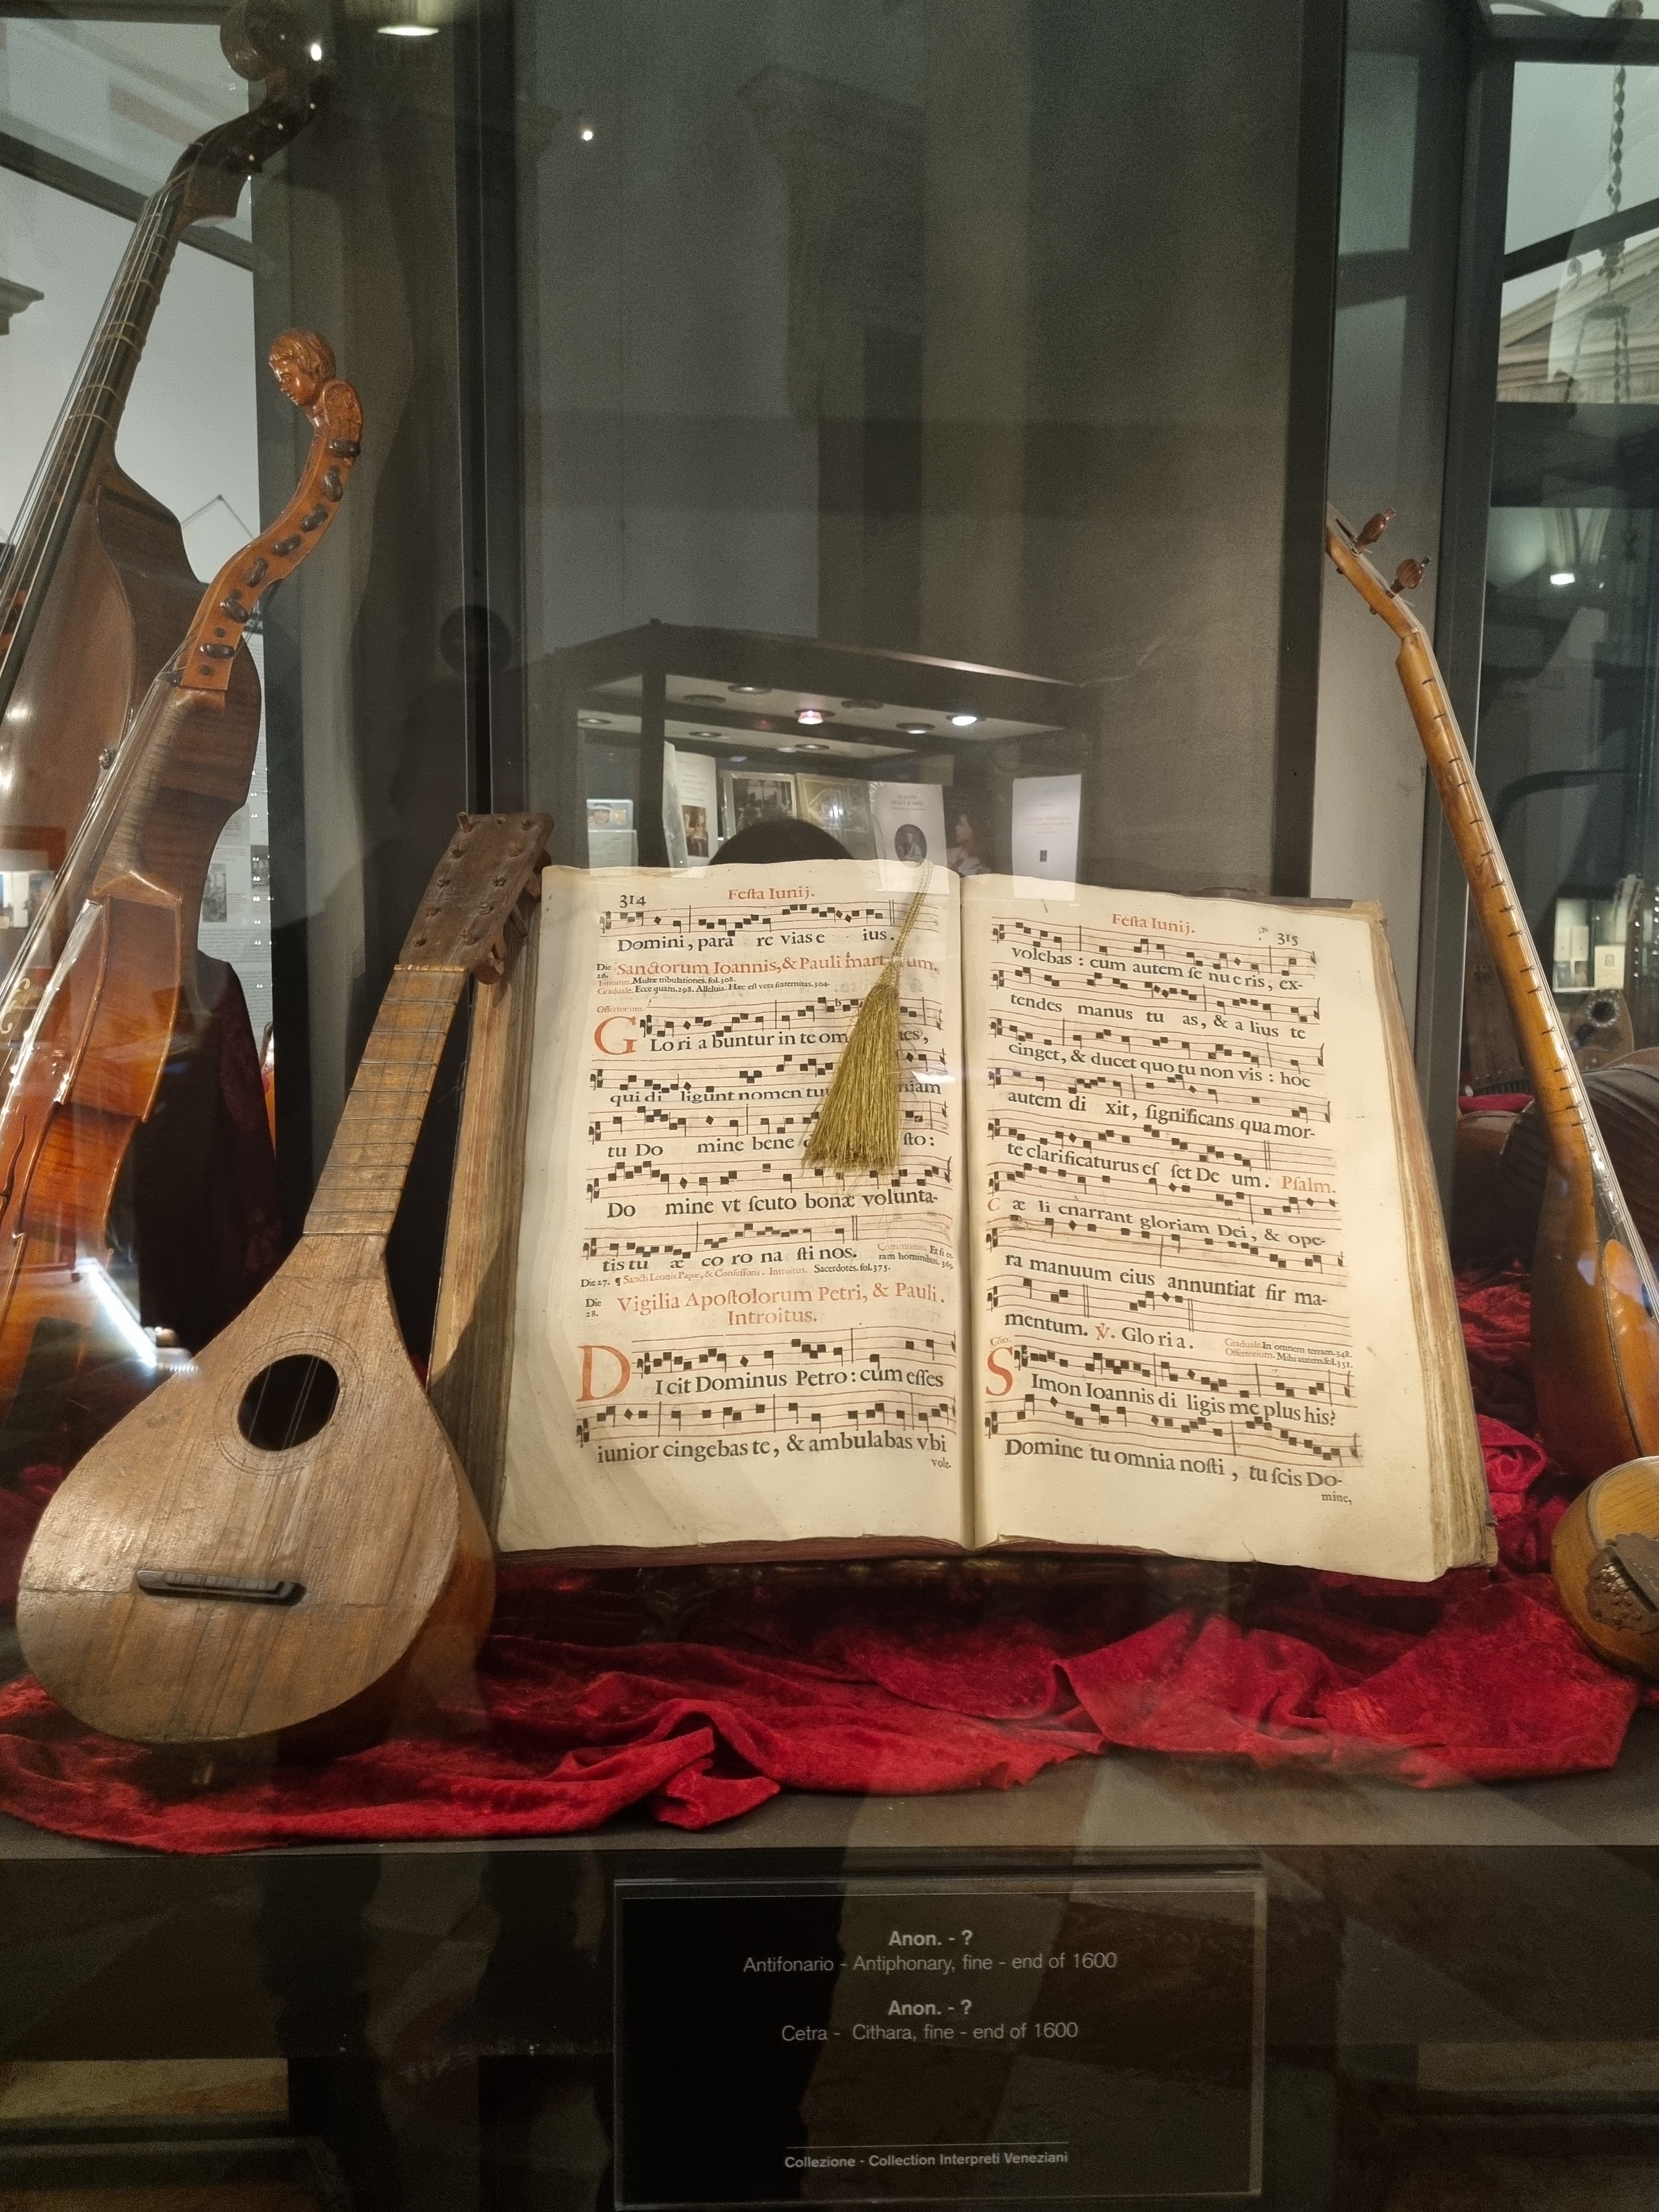 314
Festa Iunij.
Domini, para re vias e ius.
Die 26. Sanctorum Ioannis, & Pauli mart um.
Introitus. Multæ tribulationes. fol. 308.
Graduale. Ecce quam. 298. Alleluia. Hæc est vera fraternitas. 304.
Offertorium.
G Lo ri a buntur in te om nes,
qui di ligunt nomen tu niam
tu Do mine bene sto:
Do mine vt scuto bonæ volunta-
tis tu æ co ro na sti nos. Communio. Et si co
ram hominibus. 369.
Die 27. ¶ Sancti Leonis Papæ, & Confessoris. Introitus. Sacerdotes. fol. 375.
Die 28. Vigilia Apostolorum Petri, & Pauli.
Introitus.
D I cit Dominus Petro: cum esses
iunior cingebas te, & ambulabas vbi
vole-
Festa Iunij.
315
volebas: cum autem se nu e ris, ex-
tendes manus tu as, & a lius te
cinget, & ducet quo tu non vis: hoc
autem di xit, significans qua mor-
te clarificaturus es set De um. Psalm.
C æ li enarrant gloriam Dei, & ope-
ra manuum eius annuntiat fir ma-
mentum. ℣. Glo ri a. Graduale. In omnem terram. 348.
Offertorium. Mihi autem. fol. 351.
Cõio.
S Imon Ioannis di ligis me plus his?
Domine tu omnia nosti, tu scis Do-
mine,
Anon. - ?
Antifonario - Antiphonary, fine - end of 1600
Anon. - ?
Cetra - Cithara, fine - end of 1600
Collezione - Collection Interpreti Veneziani